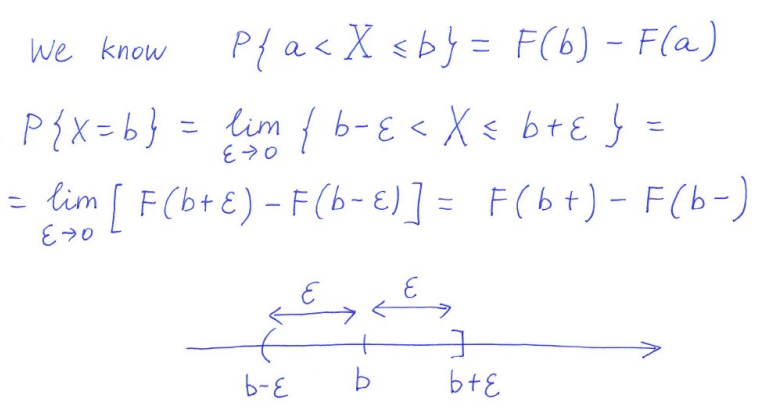 We know P{ a < X ≤ b } = F(b) - F(a)
P{X=b} = lim { b-ε < X ≤ b+ε } =
ε→0
= lim [ F(b+ε) - F(b-ε) ] = F(b+) - F(b-)
ε→0
ε ε
b-ε b b+ε